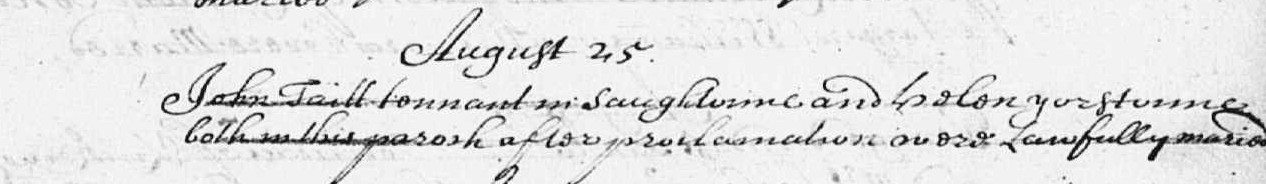 August 25.
John Taill tennant in Saughtoune and Helen yorstoune
both in this parosh after proclamation were Lawfully maried